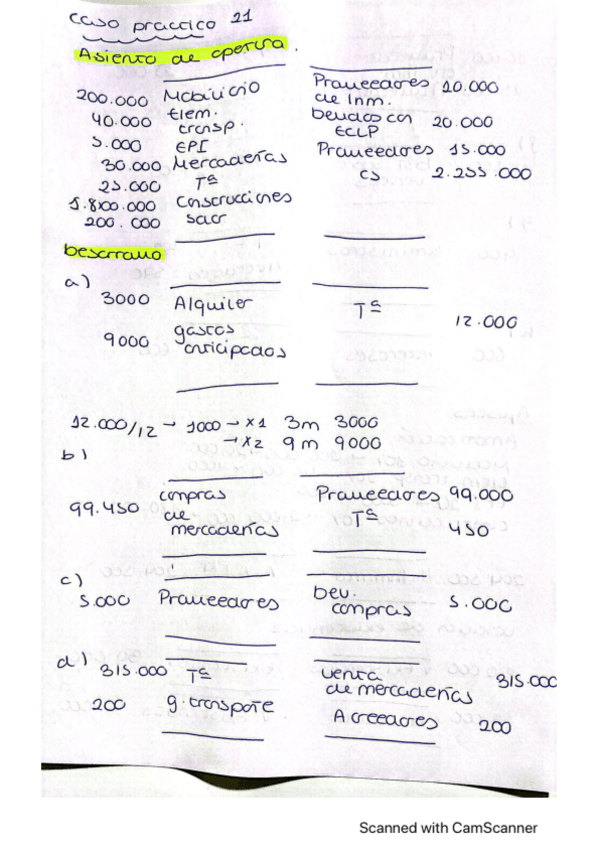 Caso practico 21
Asiento de apertura.
200.000 Mobiliario
40.000 Elem. transp.
5.000 EPI
30.000 Mercaderías
25.000 Tª
1.800.000 Construcciones
200.000 Saer
Proveedores de Inm. 10.000
deudas con ECLP 20.000
Proveedores 15.000
CS 2.255.000
Desarrollo
a)
3000 Alquiler
9000 gastos anticipados
Tª 12.000
12.000/12 → 1000 → x1 3m 3000
→ x2 9m 9000
b)
99.450 compras de mercaderías
Proveedores 99.000
Tª 450
c)
5.000 Proveedores
dev. compras 5.000
d)
315.000 Tª
200 g. transporte
venta de mercaderías 315.000
Acreedores 200
Scanned with CamScanner